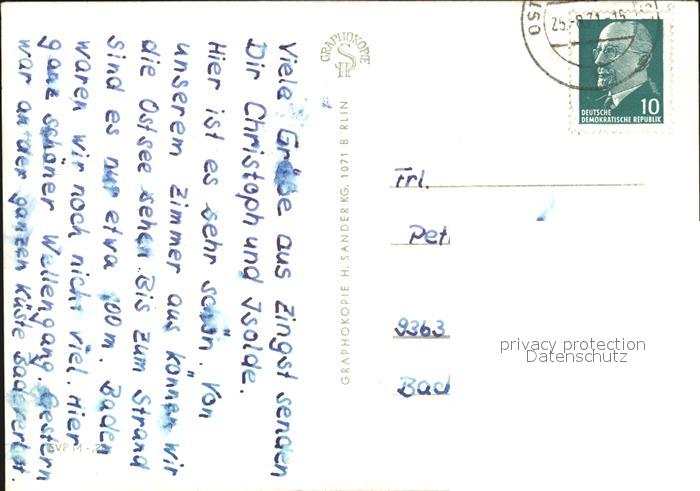 Viele Grüße aus Zingst senden
Dir Christoph und Isolde.
Hier ist es sehr schön. Von
unserem Zimmer aus können wir
die Ostsee sehen. Bis zum Strand
sind es nur etwa 100 m. Baden
waren wir noch nicht viel. Hier
ganz schöner Wellengang. Gestern
war an der ganzen Küste Badeverbot.
EVP M -,2
GRAPHOKOPIE
GRAPHOKOPIE H. SANDER KG. 1071 B RLIN
25.-8.71.-15
DEUTSCHE
DEMOKRATISCHE REPUBLIK
10
Frl.
Pet
9363
privacy protection
Datenschutz